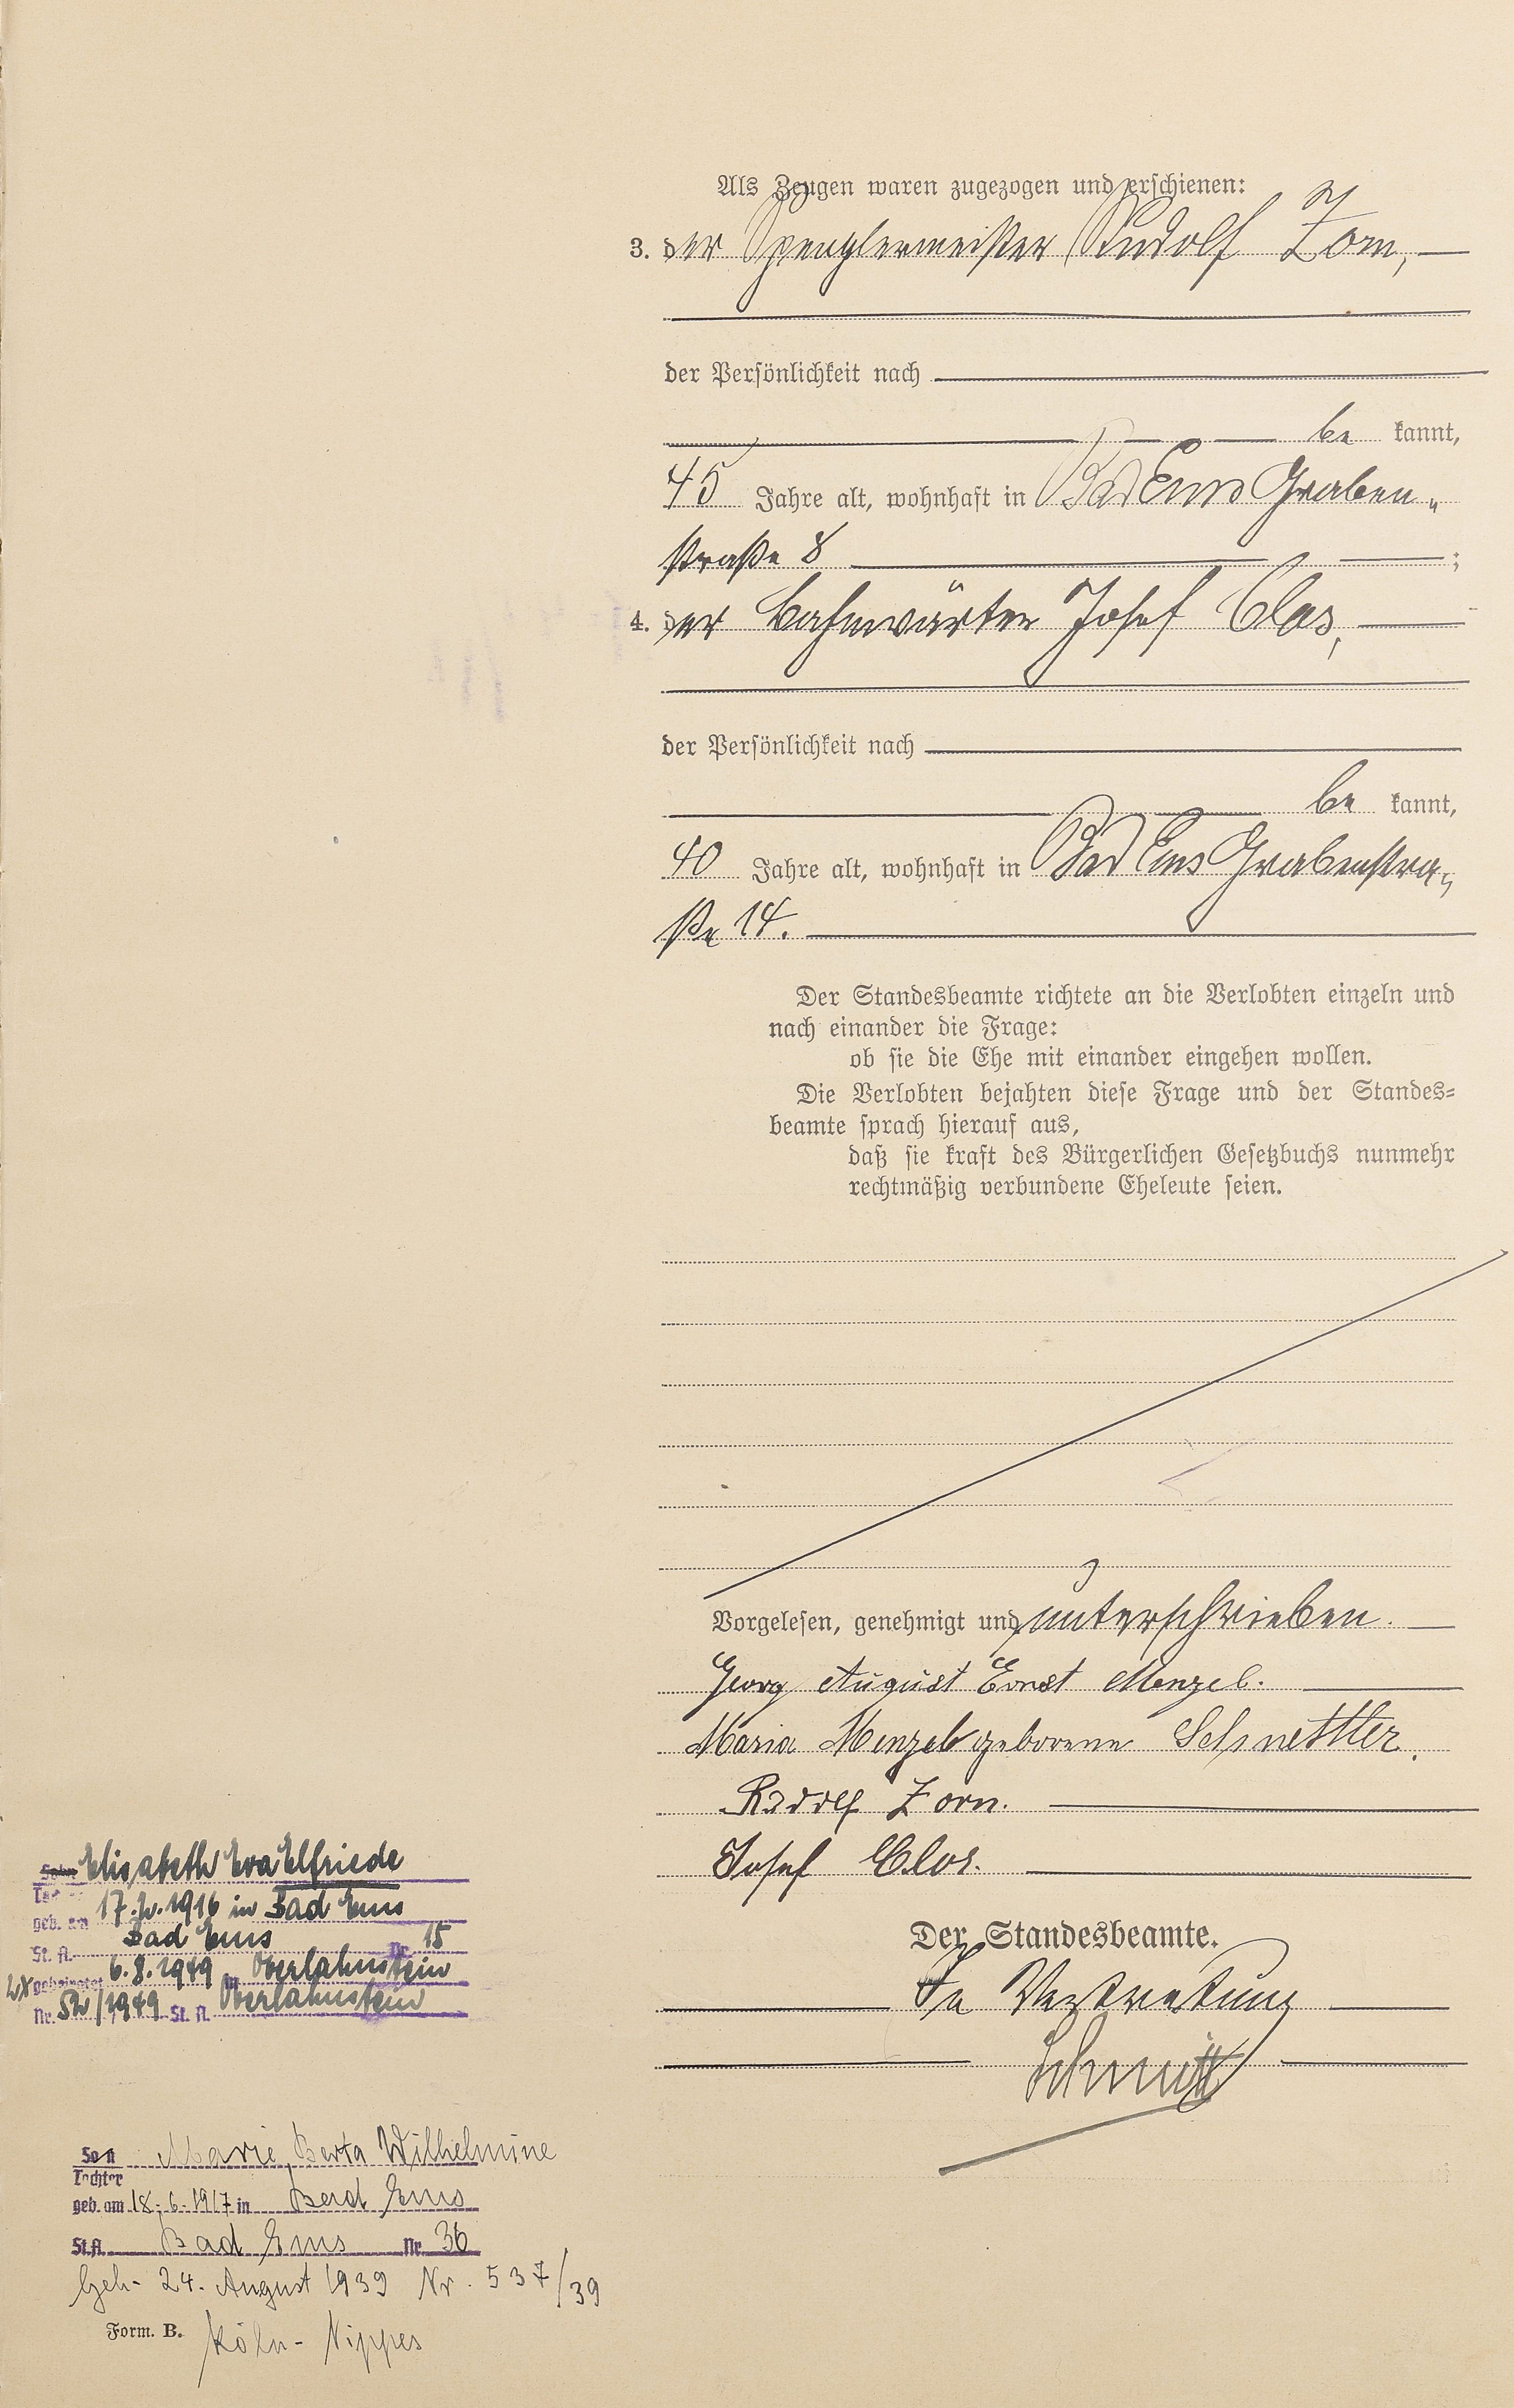 Als Zeugen waren zugezogen und erschienen:
3. der Spenglermeister Rudolf Zorn,
der Persönlichkeit nach
be kannt,
45 Jahre alt, wohnhaft in Bad Ems Graben„
straße 8 ;
4. der Bahnwärter Josef Clos,
der Persönlichkeit nach
be kannt,
40 Jahre alt, wohnhaft in Bad Ems Grabenstra„
ße 14.
Der Standesbeamte richtete an die Verlobten einzeln und
nach einander die Frage:
ob sie die Ehe mit einander eingehen wollen.
Die Verlobten bejahten diese Frage und der Standes=
beamte sprach hierauf aus,
daß sie kraft des Bürgerlichen Gesetzbuchs nunmehr
rechtmäßig verbundene Eheleute seien.
Vorgelesen, genehmigt und unterschrieben.
Georg August Ernst Menzel.
Maria Menzel geborene Schnettler.
Rudolf Zorn.
Josef Clos.
Der Standesbeamte.
In Vertretung
Schmitt
Sohn Elisabeth Eva Elfriede
geb. am 17. 2. 1916 in Bad Ems
St. A. Bad Ems Nr. 15
geheiratet 6. 8. 1949 in Oberlahnstein
Nr. 52/1949 St. A. Oberlahnstein
Sohn Marie, Berta Wilhelmine
Tochter
geb. am 18. 6. 1917 in Bad Ems
St. A. Bad Ems Nr. 36
Geh. 24. August 1939 Nr. 537/39
Form. B. Köln-Nippes